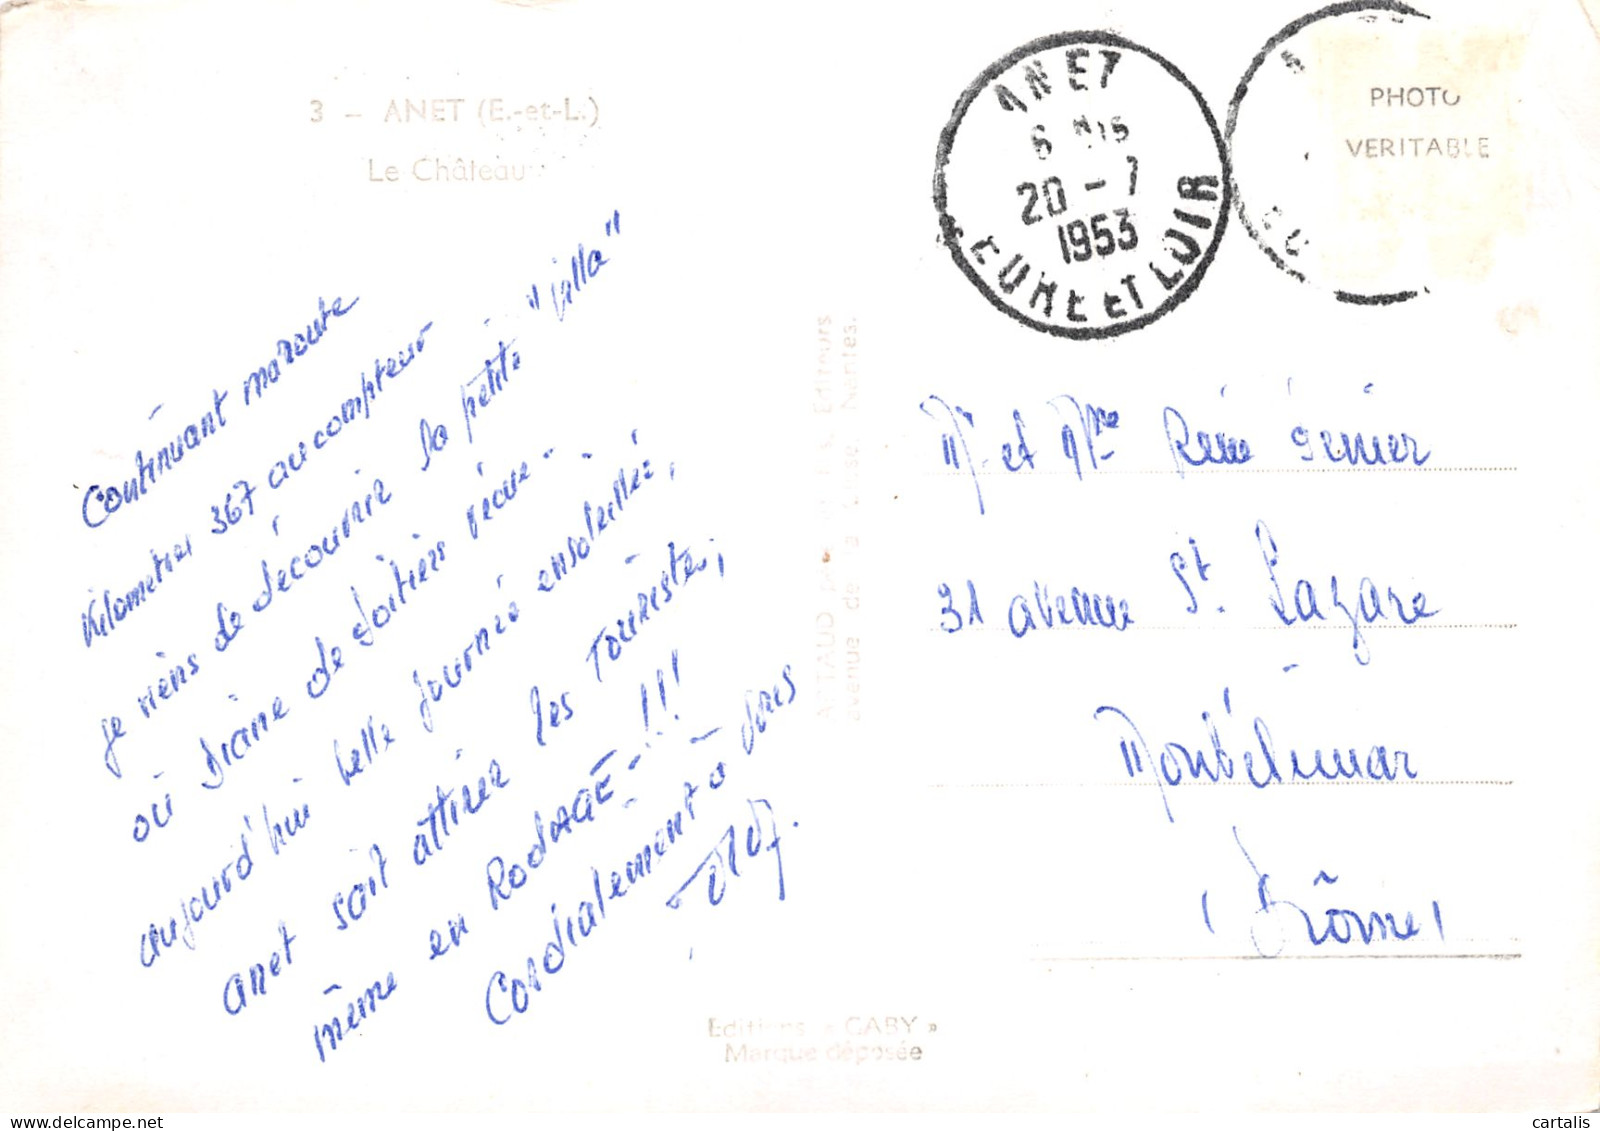 3 - ANET (E.-et-L.)
Le Château
Continuant ma route
kilomètres 367 au compteur
je viens de découvrir la petite "villa"
où Diane de Poitiers vécue -
aujourd'hui belle journée ensoleillée,
anet sait attirer les Touristes,
même en RodAGE - !!!
Cordialement à vous
ANET
20 - 7
1953
EURE ET LOIR
PHOTO
VERITABLE
ARTAUD Editeurs
avenue de la Close, Nantes.
Mr et Mme Réné
31 avenue St. Lazare
Montélimar
(Drôme)
Editions "GABY"
Marque déposée
cartalis